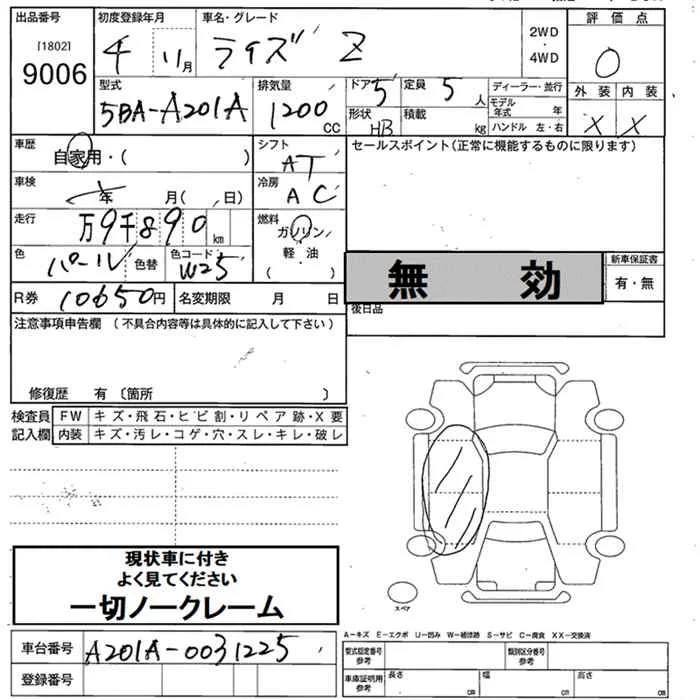 出品番号
[1802]
9006
初度登録年月
4 11月
車名・グレード
ライズ Z
2WD
・
4WD
評価点
0
型式
5BA-A201A
排気量
1200 CC
ドア 5
定員 5人
形状 HB
積載 kg
ディーラー・並行
モデル年式 年
ハンドル 左・右
外装 内装
X X
車歴
自家用・( )
シフト
AT
セールスポイント(正常に機能するものに限ります)
車検
年 月( 日)
冷房
AC
走行
万9千890km
燃料
ガソリン
・
軽・油
( )
色
パール 色替
色コード
W25
無効
新車保証書
有・無
R券 10650円
名変期限 月 日
後日品
注意事項申告欄 (不具合内容等は具体的に記入して下さい)
修復歴 有 〔箇所 〕
検査員記入欄
FW キズ・飛石・ヒビ割・リペア跡・X要
内装 キズ・汚レ・コゲ・穴・スレ・キレ・破レ
現状車に付き
よく見てください
一切ノークレーム
スペア
A-キズ E-エクボ U-凹み W-補修跡 S-サビ C-腐食 XX-交換済
車台番号 A201A-0031225
登録番号
型式指定番号 参考
類別区分番号 参考
車庫証明用 参考
長さ cm
幅 cm
高さ cm